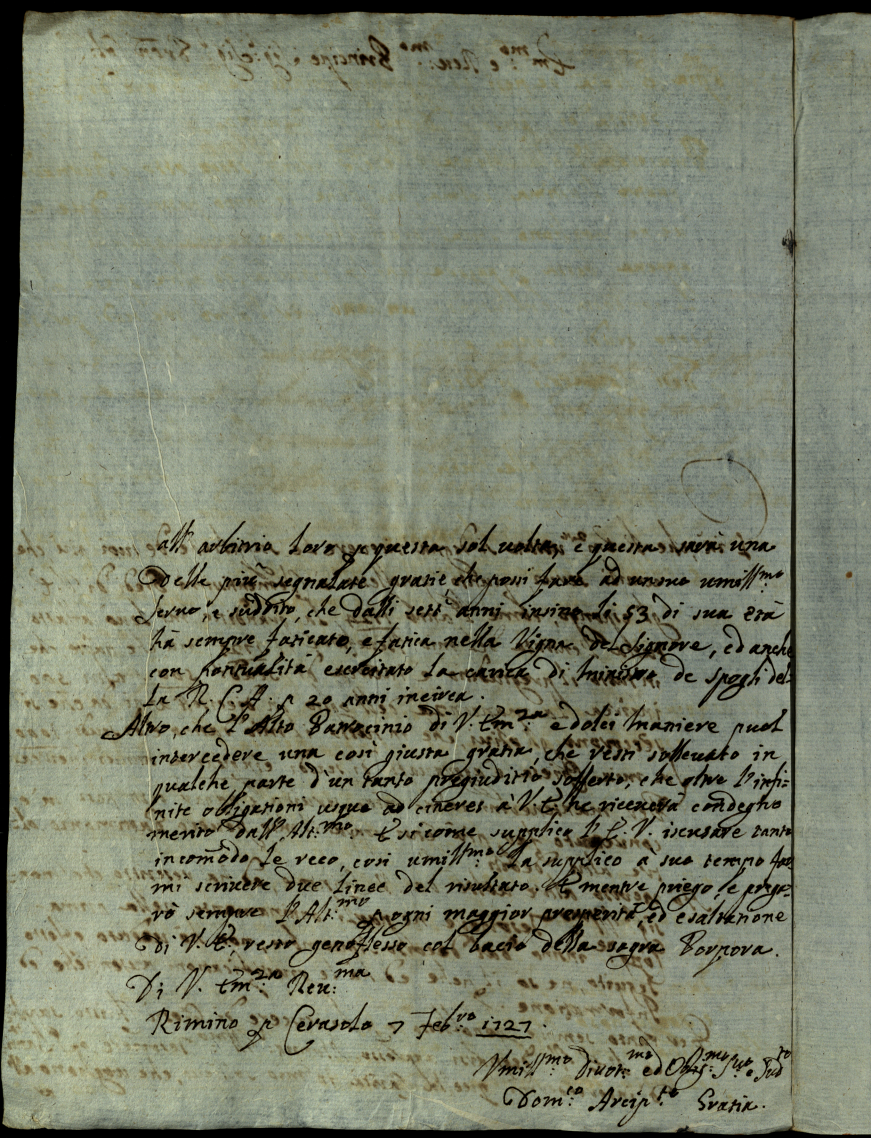 all' arbitrio loro p questa sol volta, e questa sarà una
Delle più segnalate grazie, che possi fare ad un suo umill:mo
servo, e suddito, che dalli sett' anni insino li 53 di sua età
hà sempre faticato, e fatica nella Vigna del Signore, ed anche
con pontualità esercitato la carica di Ministro de spogli del-
la R. C. A. p 20 anni incirca.
Altro, che l'Alto Patrocinio di V. Em:za e dolci maniere puol
intercedere una così giusta gratia, che resti sollevato in
qualche parte d'un tanto pregiuditio sofferto, che oltre l'infi-
nite obligationi usque ad cineres à V. E. he riceverà condegno
merito dall' Alt:mo. E sicome supplico l' E. V. iscusare tanto
incomodo le reco, così umillmo: La supplico à suo tempo far
mi scrivere due linee del risultato. E mentre priego, e prego-
rò sempre l'Alt:mo p ogni maggior prosperità, ed esaltatione
Di V. E., resto genoflesso col bacio della sagra Porpora.
Di V. Em:za Reu:ma
Rimino p Cerasolo 7 Feb:ro 1727.
Umill:mo Divot:mo ed Obl:mo Se:re e Sud:to
Dom:co Arcip:te Gratia.